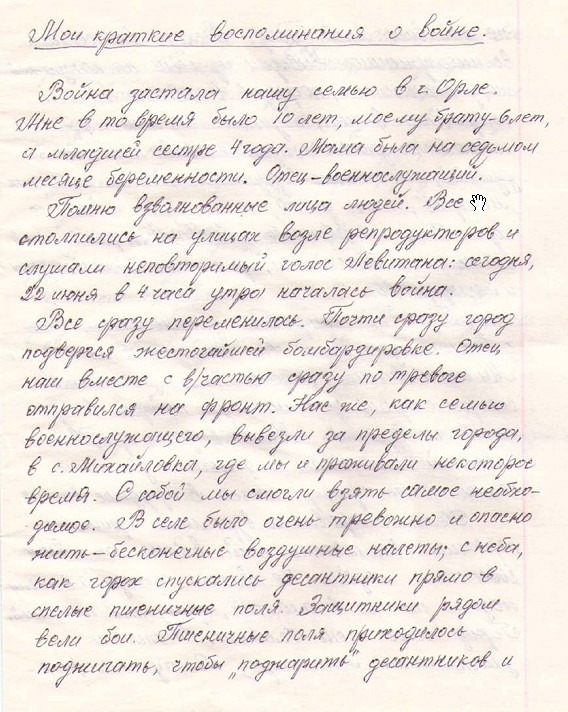 Мои краткие воспоминания о войне.
Война застала нашу семью в г. Орле.
Мне в то время было 10 лет, моему брату-6 лет,
а младшей сестре 4 года. Мама была на седьмом
месяце беременности. Отец-военнослужащий.
Помню взволнованные лица людей. Все
столпились на улицах возле репродукторов и
слушали неповторимый голос Левитана: сегодня,
22 июня в 4 часа утра началась война.
Все сразу переменилось. Почти сразу город
подвергся жесточайшей бомбардировке. Отец
наш вместе с в/частью сразу по тревоге
отправился на фронт. Нас же, как семью
военнослужащего, вывезли за пределы города,
в с. Михайловка, где мы и проживали некоторое
время. С собой мы смогли взять самое необхо-
димое. В селе было очень тревожно и опасно
жить-бесконечные воздушные налеты; с неба,
как горох спускались десантники прямо в
спелые пшеничные поля. Защитники рядом
вели бои. Пшеничные поля приходилось
поджигать, чтобы „поджарить" десантников и